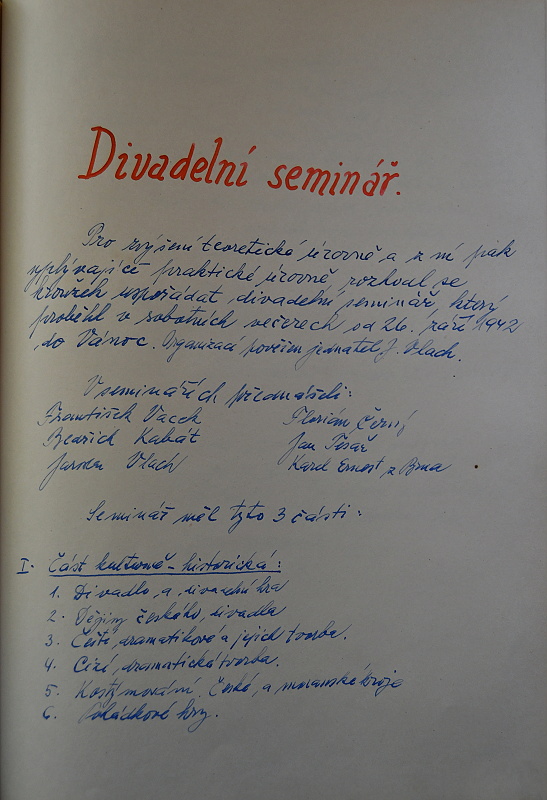 Divadelní seminář.
Pro zvýšení teoretické úrovně a z ní pak
vyplývající praktické úrovně rozhodl se
kroužek uspořádat divadelní seminář, který
proběhl v sobotních večerech od 26. září 1942
do Vánoc. Organizací pověřen jednatel J. Vlach.
V seminářích přednášeli:
František Vacek Florián Černý
Bedřich Kabát Jan Tesař
Jaroslav Vlach Karel Ernest z Brna
Seminář měl tyto 3 části:
I. Část kulturně-historická:
1. Divadlo a divadelní hra
2. Dějiny českého divadla
3. Čeští dramatikové a jejich tvorba.
4. Cizí dramatická tvorba.
5. Kostýmování. České a moravské kroje
6. Pohádkové hry.